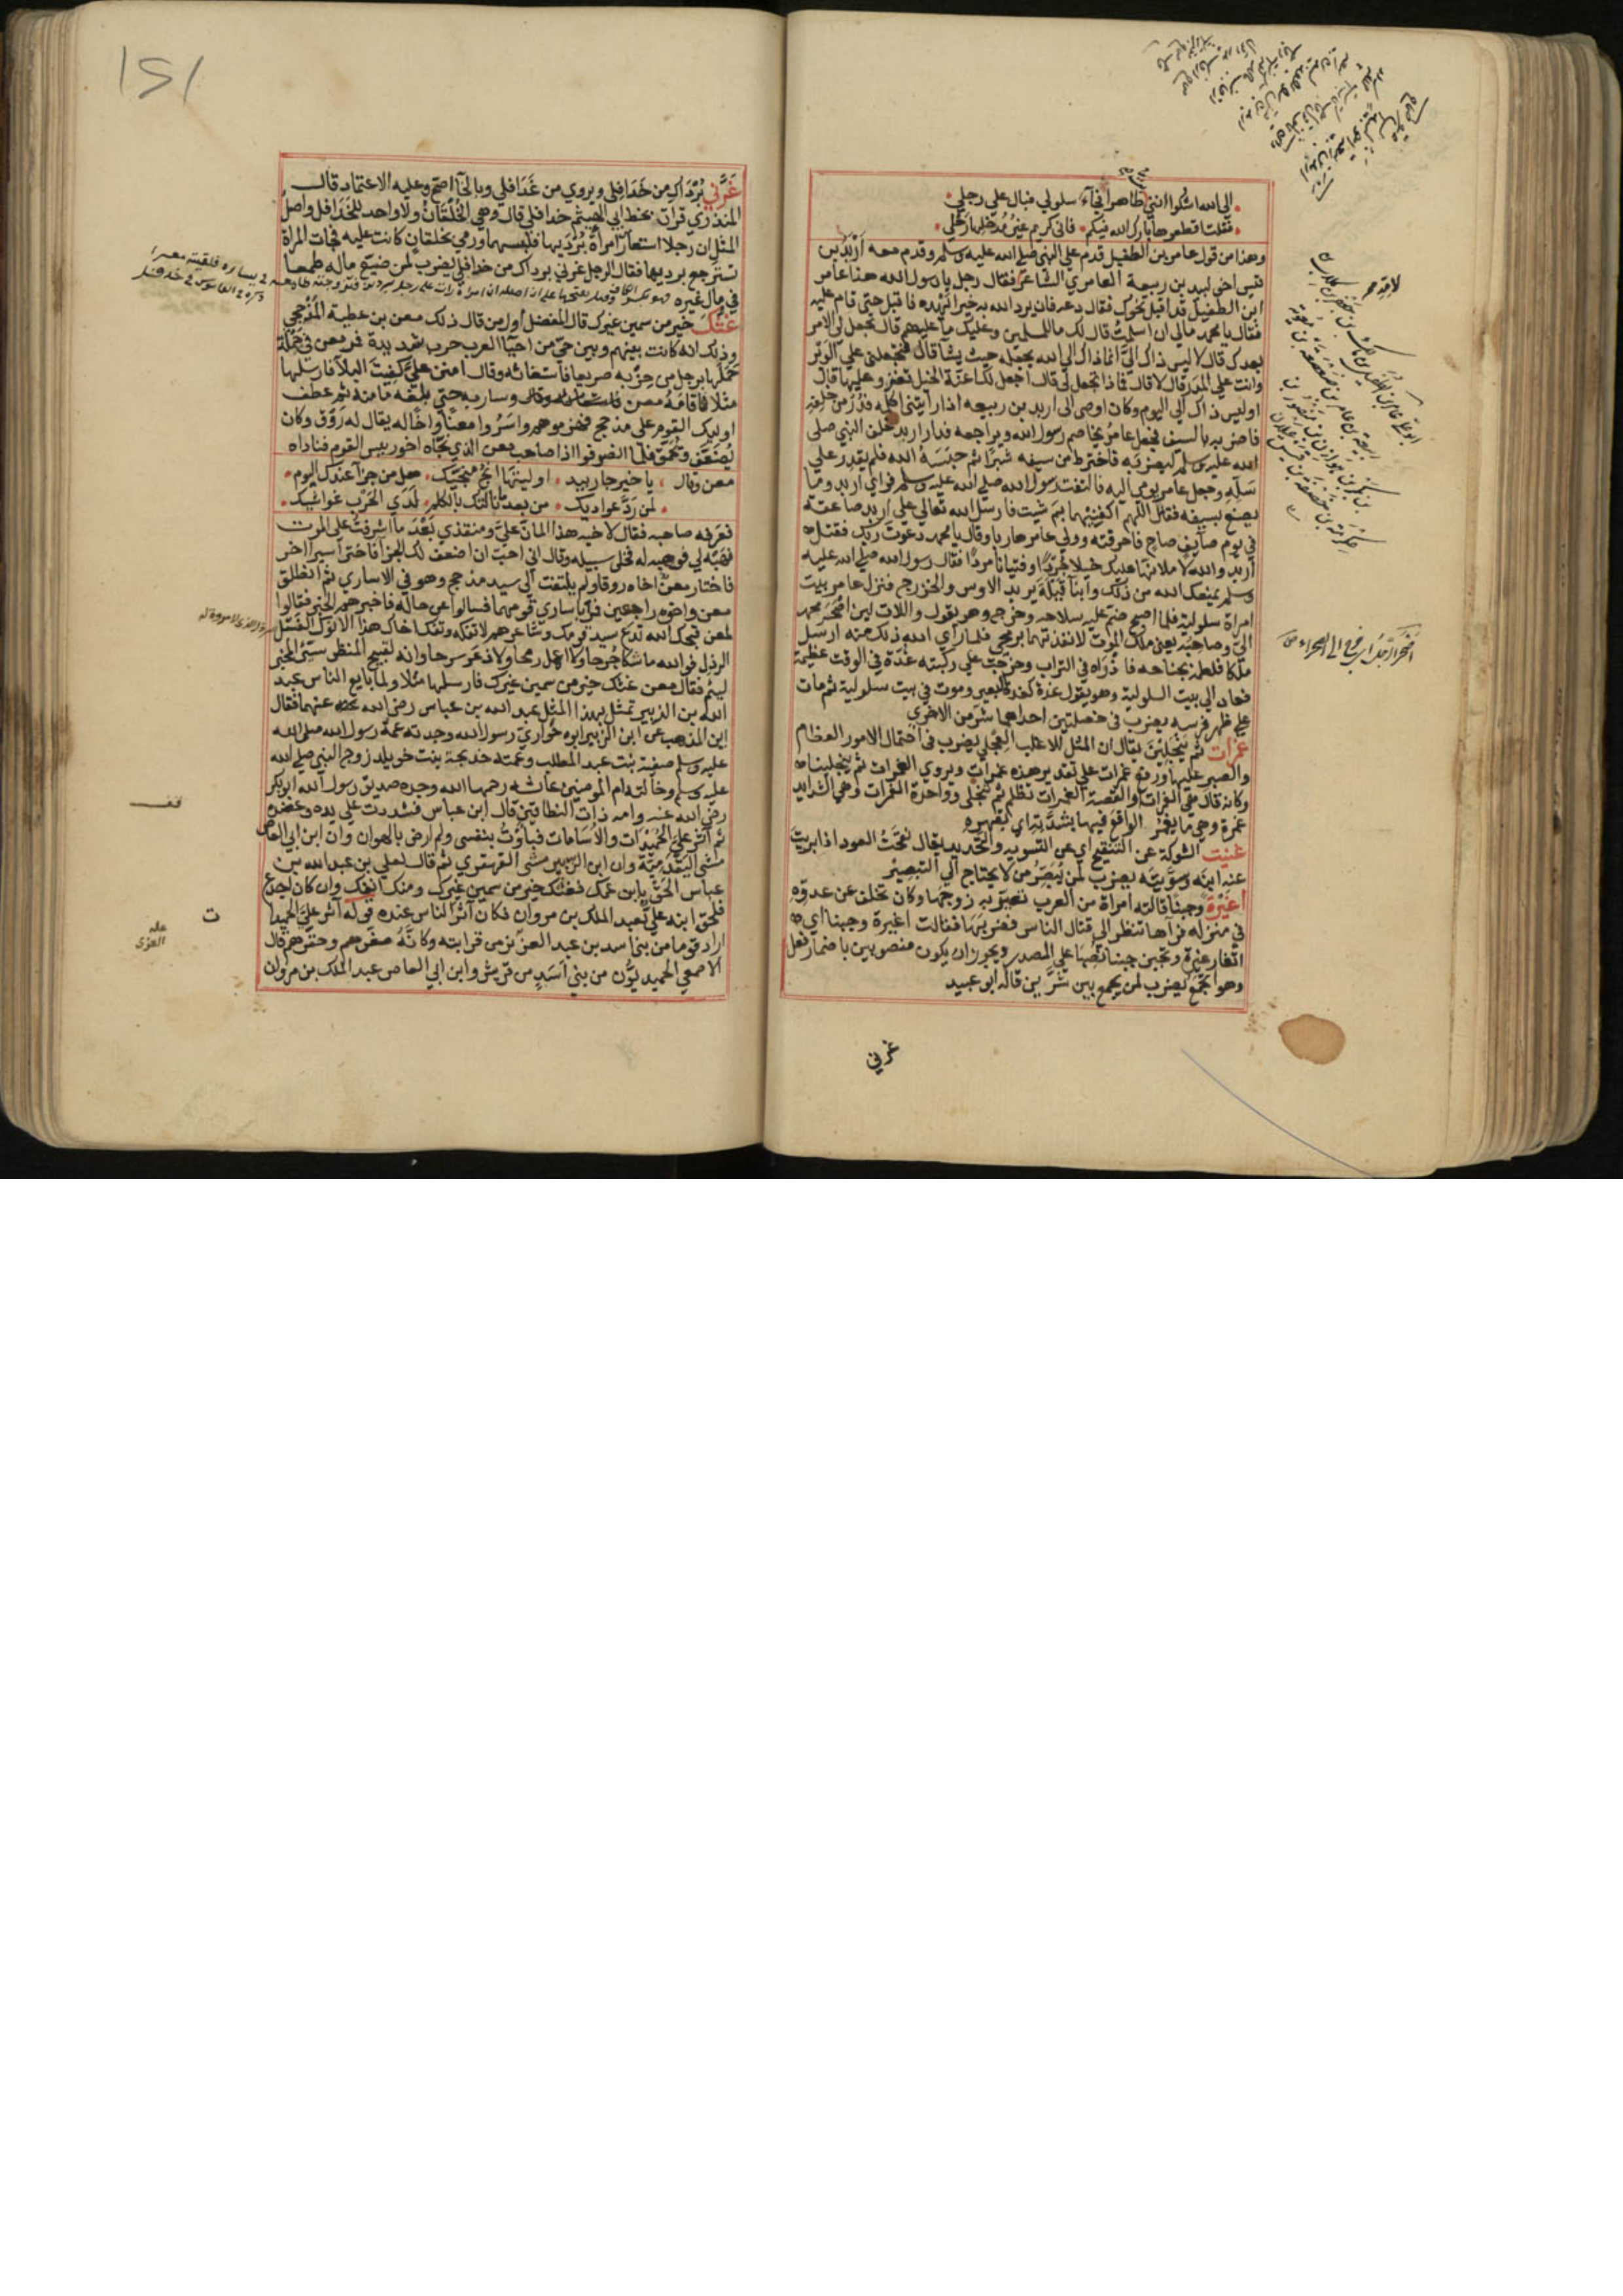 الي الله اشكوا انني طاهرا فجآء سلولي فبال علي رجلي
فقلت اقطعوها بارك الله فيكم فاني كريم غير مدخلها رحلي
وهذا من قول عامر بن الطفيل قدم علي النبي صلي الله عليه وسلم وقدم معه أربد بن
قيس اخي لبيد بن ربيعة العامري الشاعر فقال رجل يا رسول الله هذا عامر
ابن الطفيل قد اقبل نحوك فقال دعه فان يرد الله به خيرا يهده فاقبل حتي قام عليه
فقال يا محمد مالي ان اسلمت قال لك ما للمسلمين وعليك ما عليهم قال تجعل لي الامر
بعدك قال لا ليس ذاك اليّ انما ذاك الي الله يجعله حيث يشآ قال فتجعلني علي الوبر
وانت علي المدر قال لا قال فماذا تجعل لي قال اجعل لك اعنّة الخيل تغزو عليها قال
اوليس ذاك الي اليوم وكان اوصي الي اربد بن ربيعه اذا رايتني اكلمه فدر من خلفه
فاضربه بالسيف فجعل عامر يخاصم رسول الله ويراجعه فدار اربد خلف النبي صلي
الله عليه وسلم ليضربه فاخترط من سيفه شبرا ثم حبسه الله فلم يقدر علي
سله وجعل عامر يومي اليه فالتفت رسول الله صلي الله عليه وسلم فراي اربد وما
يصنع بسيفه فقال اللهم اكفنيهما بم شيت فارسل الله تعالي علي اربد صاعقة
في يوم صايف صاحٍ فاحرقته وولي عامر هاربا وقال يا محمد دعوت ربك فقتل
اربد والله لاملانها عليك خيلا جُردًا وفتيانا مردًا فقال رسول الله صلي الله عليه
وسلم يمنعك الله من ذلك وابنا قيلة يريد الاوس والخزرج فنزل عامر بيت
امراة سلولية فلما اصبح ضم عليه سلاحه وخرج وهو يقول واللات لين اصحر محمد
اليّ وصاحبه يعني ملك الموت لانفذتهما برمحي فلما راي الله ذلك منه ارسل
ملكا فلطمه بجناحه فاذراه في التراب وخرجت علي ركبته غدّة في الوقت عظيمة
فعاد الي بيت السلولية وهو يقول غدة كغدة البعير وموت في بيت سلولية ثم مات
علي ظهر فرسه يضرب في خصلتين احداهما شر من الاخري
غمرات ثم ينجلين يقال ان المثل للاغلب العجلي يضرب في احتمال الامور العظام
والصبر عليها ورفع غمرات علي تقدير هذه غمرات ويروي الغمرات ثم ينجلينا
وكانه قال هي الغمرات او القصة الغمرات تظلم ثم تنجلي وواحدة الغمرات وهي الشدايد
غمرة وهي ما يغمر الواقع فيها بشدته اي يقهره
غنيت الشوكة عن التنقيح اي عن التسويه والتحديد يقال نقحت العود اذا بريت
عنه ابنه وسوّيته يضرب لمن يُبصِّر من لا يحتاج الي التبصير
اغيرة وجبنا قالته امراة من العرب تعيّر به زوجها وكان تخلف عن عدوه
في منزله فرآها تنظر الي قتال الناس فضربها فقالت اغيرة وجبنا اي
اتغار غيرة وتجبن جبنا نصبهما علي المصدر ويجوز ان يكون منصوبين باضمار فعل
وهو اتجمع يضرب لمن يجمع بين شرّين قاله ابو عبيد
غرني
اصحر الرجل اي خرج الي الصحراء
غَرَّني بُرْدَاكِ من خَدَافِلي ويروي من غَدَافلي وبالخآ اصح وعليه الاعتماد قال
المنذري قرات بخط ابي الهيثم خدافلي قال وهي الخُلْقان ولا واحد للخَدَافل واصل
المثل ان رجلا استعار امرأة بُرْدَيها فلبسهما ورمي بخلقانٍ كانت عليه فجات المراة
تسترجع برديها فقال الرجل غرني برداك من خدافلي يضرب لمن ضيّع ماله طمعا
في مال غيره
غَثُّكَ خير من سمين غيرك قال المفضل اول من قال ذلك معن بن عطية المذحجي
وذلك انه كانت بينهم وبين حيّ من احيآ العرب حرب شديدة فمر معن في حملة
حملها برجل من حزبه صريعا فاستغاثه وقال امنن عليّ كفيت البلآ فارسلها
مثلا فاقامه معن وسار به حتي بلغه مامنه ثم عطف
اوليك القوم علي مذحج فهزموهم واسَرُوا معنًا واخًا له يقال له رَوْق وكان
يُضَعَّف ويُحمَّق فلما انصرفوا اذا صاحب معن الذي نجّاه اخو رييس القوم فناداه
معن وقال يا خير جار بيد اوليتها انج منجيّك هل من جزآ عندك اليوم
لمن ردّ عواديك من بعد نالتك بالكلم لدي الحرب غواشيك
فعرفه صاحبه فقال لاخيه هذا المانّ عليّ ومنقذي بعد ما اشرفت علي الموت
فهبه لي فوهبه له فخلي سبيله وقال اني احبّ ان اضعف لك الجزآ فاختر اسيرا اخر
فاختار معن اخاه روقا ولم يلتفت الي سيد مذحج وهو في الاساري ثم انطلق
معن واخوه راجعين فمرّا باساري قومهما فسالوا عن حاله فاخبرهم الخبر فقالوا
لمعن قبحك الله تدع سيد قومك وشاعرهم لا تفكه وتفك اخاك هذا الانوك الفسل
الرذل فوالله ما نكا جرحا ولا اعمل رمحا ولا ذعر سرحا وانه لقبيح المنظر سيّئ المخبر
ليئم فقال معن غثك خير من سمين غيرك فارسلها مثلا ولما بايع الناس عبد
الله بن الزبير تمثل بهذا المثل عبد الله بن عباس رضي الله عنهما فقال
اين المذهب عن ابن الزبير ابوه حواري رسول الله وجدته عمة رسول الله صلي الله
عليه وسلم صفية بنت عبد المطلب وعمته خديجة بنت خويلد زوج النبي صلي الله
عليه وسلم وخالته ام المومنين عائشه رحمها الله وجده صديق رسول الله ابو بكر
رضي الله عنه وامه ذات النطاقين قال ابن عباس فشددت علي يده وعضده
ثم آثر عليّ الحُميدات والاسامات فبأوت بنفسي ولم ارض بالهوان وان ابن ابي العاص
مشي اليَقْدُمِيّة وان ابن الزبير مشي القهقري ثم قال لعلي بن عبد الله بن
عباس الحق بابن عمك فغثك خير من سمين غيرك ومنك انفك وان كان اجدع
فلحق ابنه عليّ بعبد الملك بن مروان فكان آثر الناس عنده قوله آثر عليّ الحميدات
اراد قوما من بني اسد بن عبد العزّي من قرابته وكانّه صغرهم وحقّرهم قال
الاصمعي الحميديّون من بني اَسَدٍ من قريش وابن ابي العاص عبد الملك بن مروان